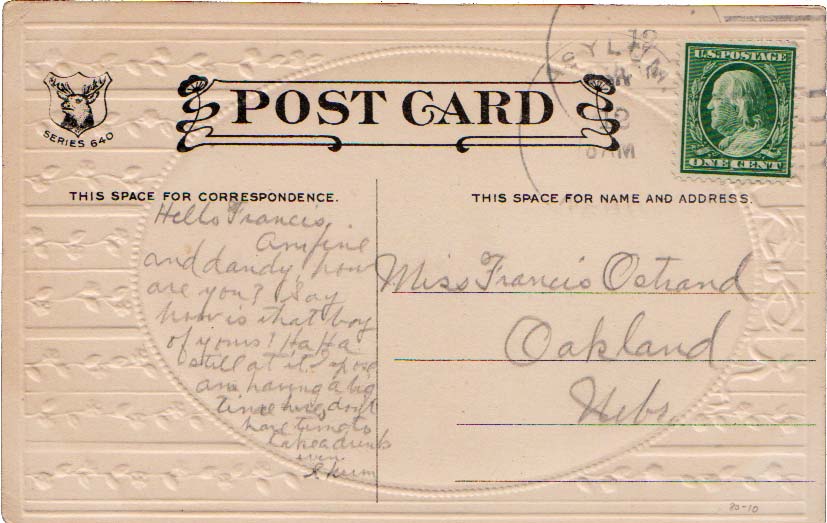 POST CARD
SERIES 640
U.S. POSTAGE
ONE CENT
THIS SPACE FOR CORRESPONDENCE.
THIS SPACE FOR NAME AND ADDRESS.
Hello Francis,
Am fine
and dandy, how
are you? Say
how is that boy
of yours! Ha Ha
still at it? spose
am having a big
time here, don't
have time to
take a drink
even.
Miss Francis Ostrand
Oakland
Nebr.
80-10